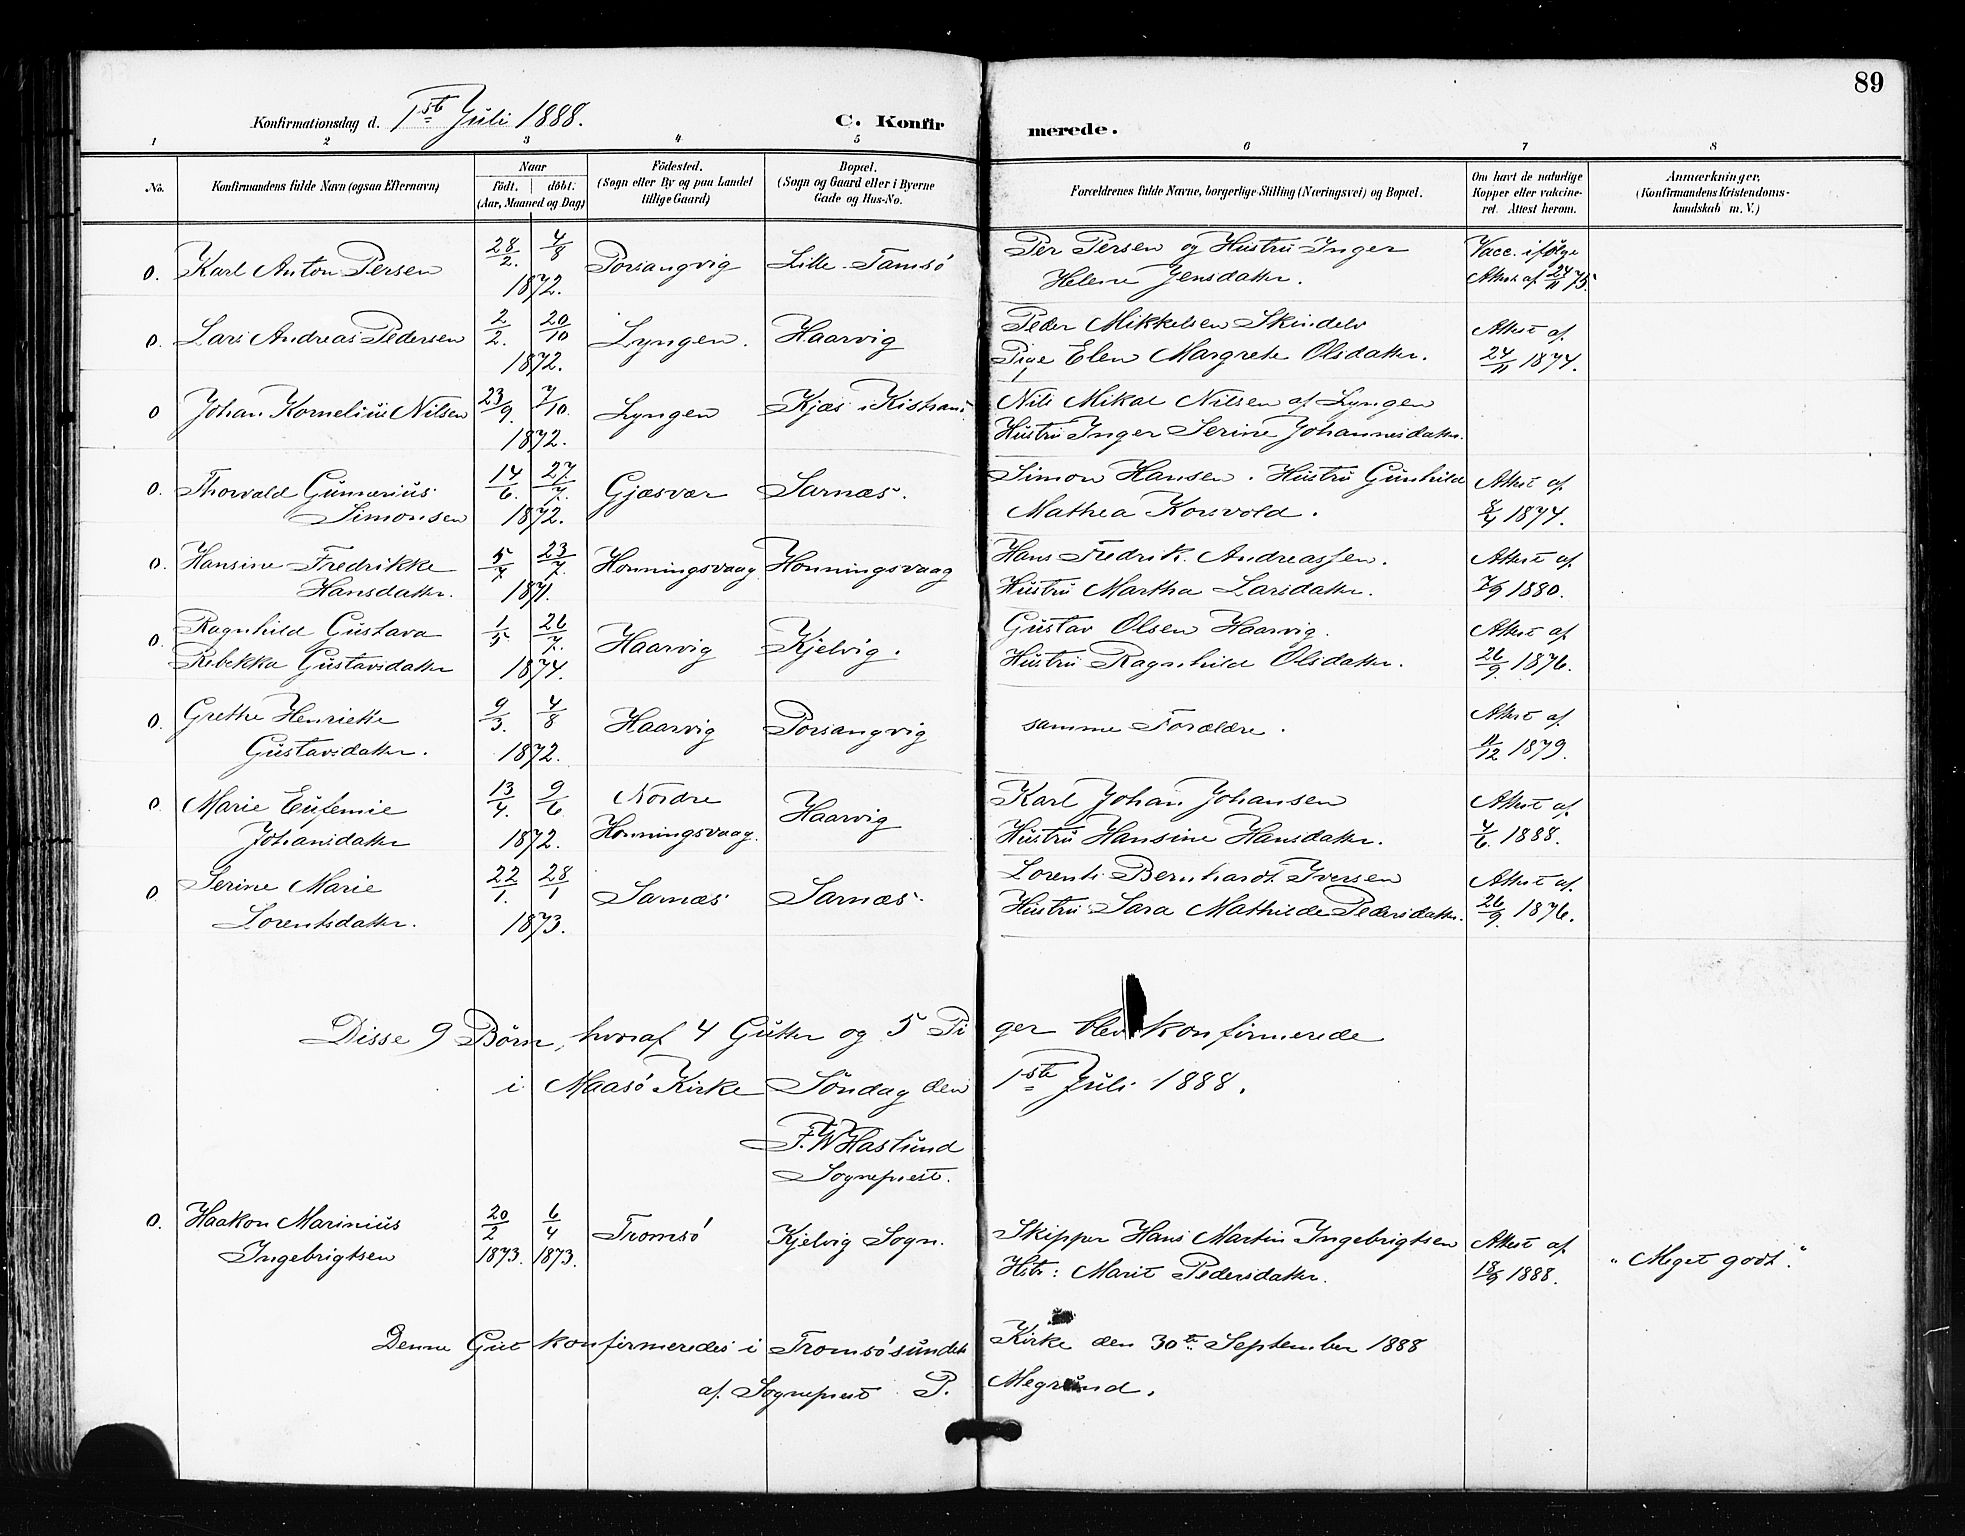 89
Konfirmationsdag d. 1ste Juli 1888. C. Konfirmerede.
1 2 3 4 5 6 7 8
No. Konfirmandens fulde Navn (ogsaa Efternavn) Naar født. døbt. (Aar, Maaned og Dag) Födested. (Sogn eller By og paa Landet tillige Gaard) Bopæl. (Sogn og Gaard eller i Byerne Gade og Hus-No. Forældrenes fulde Navne, borgerlige Stilling (Næringsvei) og Bopæl. Om havt de naturlige Kopper eller vakcineret. Attest herom. Anmærkninger, (Konfirmandens Kristendomskundskab m. V.)
0. Karl Anton Persen 28/2. 4/8 1872. Porsangvig Lille Tamsö Per Persen og Hustru Inger Helene Jensdatter. Vacc. ifølge Attest af 24/11 75.
0. Lars Andreas Pedersen 2/2. 20/10 1872. Lyngen. Haarvig Peder Mikkelsen Skindelv Pige Elen Margrete Olsdatter. Attest af 24/11 1874.
0 Johan Kornelius Nilsen 23/9. 7/10. 1872. Lyngen Kjæs i Kistrand Nils Mikal Nilsen af Lyngen Hustru Inger Serine Johannesdatter.
0. Thorvald Gunnerius Simonsen 14/6. 27/7. 1872. Gjæsvær Sarnæs. Simon Hansen. Hustru Gunhild Mathea Korsvold. Attest af 1874.
0. Hansine Fredrikke Hansdatter. 5/7. 23/7. 1871. Honningsvaag Honningsvaag Hans Fredrik Andreassen. Hustru Martha Larsdatter. Attest af 7/9 1880.
0. Ragnhild Gustava Rebekka Gustavsdatter 1/5 26/7. 1874. Haarvig Kjelvig. Gustav Olsen Haarvig. Hustru Ragnhild Olsdatter. Attest af 26/9. 1876.
0. Grethe Henrikke Gustavsdatter. 9/3. 4/8 1872. Haarvig Porsangvig samme Forældre. Attest af 11/12 1879.
0. Marie Eufemie Johansdatter 13/4. 9/6 1872. Nordre Honningsvaag. Haarvig Karl Johan Johansen Hustru Hansine Hansdatter. Attest af 4/6. 1888.
0. Serine Marie Lorentsdatter. 22/1. 28/1 1873. Sarnæs Sarnæs. Lorents Bernhardt Iversen Hustru Sara Mathilde Pedersdatter. Attest af 26/9. 1876.
Disse 9 Børn, hvoraf 4 Gutter og 5 Piger blev konfirmerede
i Maasö Kirke Söndag den 1ste Juli 1888.
F. W Haslund
Sogneprest.
0. Haakon Marinius Ingebrigtsen 20/2 1873. 6/4 1873. Tromsö Kjelvig Sogn. Skipper Hans Martin Ingebrigtsen Hstr: Marit Pedersdatter. Attest af 18/9 1888. "Meget godt."
Denne Gut konfirmeredes i Tromsösundets Kirke den 30te September 1888
af Sogneprest P. Megrund.